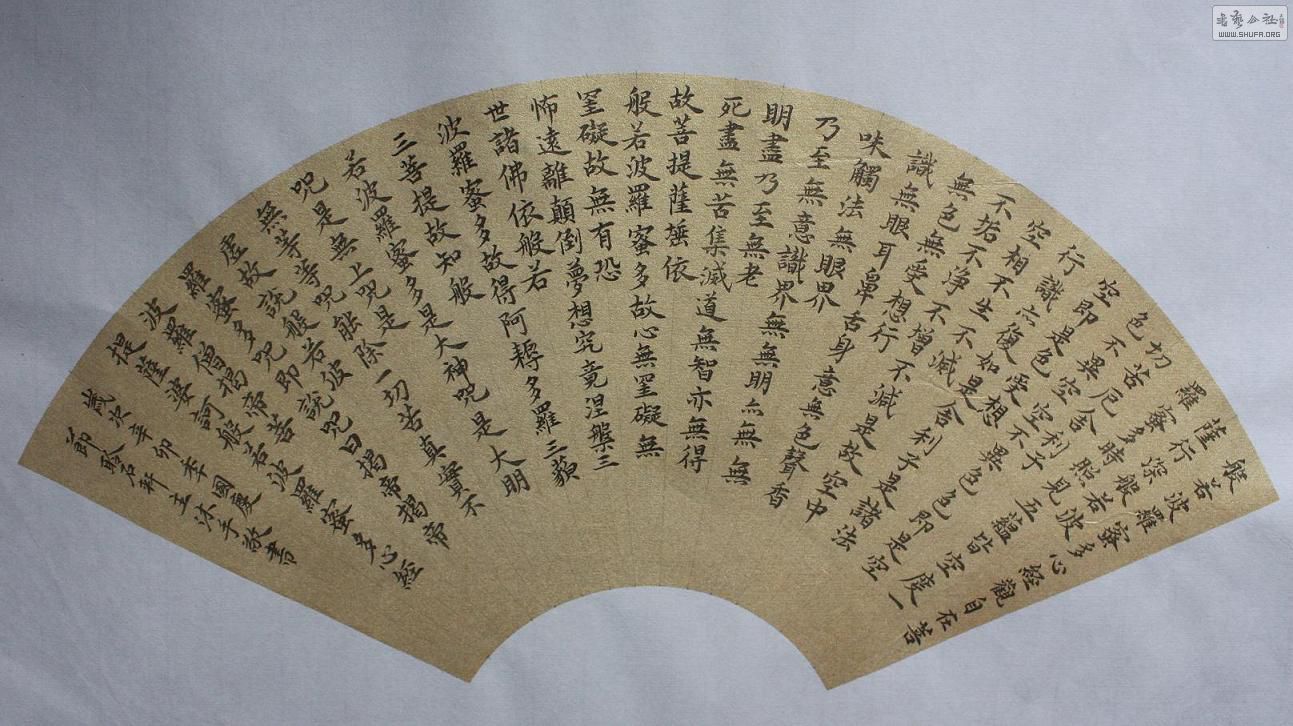 般若波羅蜜多心經觀自在菩
薩行深般若波
羅蜜多時照見五蘊皆空度一
切苦厄舍利子
色不異空空不異色色即是空
空即是色受想
行識亦復如是舍利子是諸法
空相不生不滅
不垢不淨不增不減是故空中
無色無受想行
識無眼耳鼻舌身意無色聲香
味觸法無眼界
乃至無意識界無無明亦無無
明盡乃至無老
死盡無苦集滅道無智亦無得
故菩提薩埵依
般若波羅蜜多故心無罣礙無
罣礙故無有恐
怖遠離顛倒夢想究竟涅槃三
世諸佛依般若
波羅蜜多故得阿耨多羅三藐
三菩提故知般
若波羅蜜多是大神咒是大明
咒是無上咒是
無等等咒能除一切苦真實不
虛故說般若波
羅蜜多咒即說咒曰揭帝揭帝
波羅僧揭帝菩
提薩婆訶般若波羅蜜多心經
歲次辛卯年國慶敬書
節軒主沐手
書藝公社
WWW.SHUFA.ORG